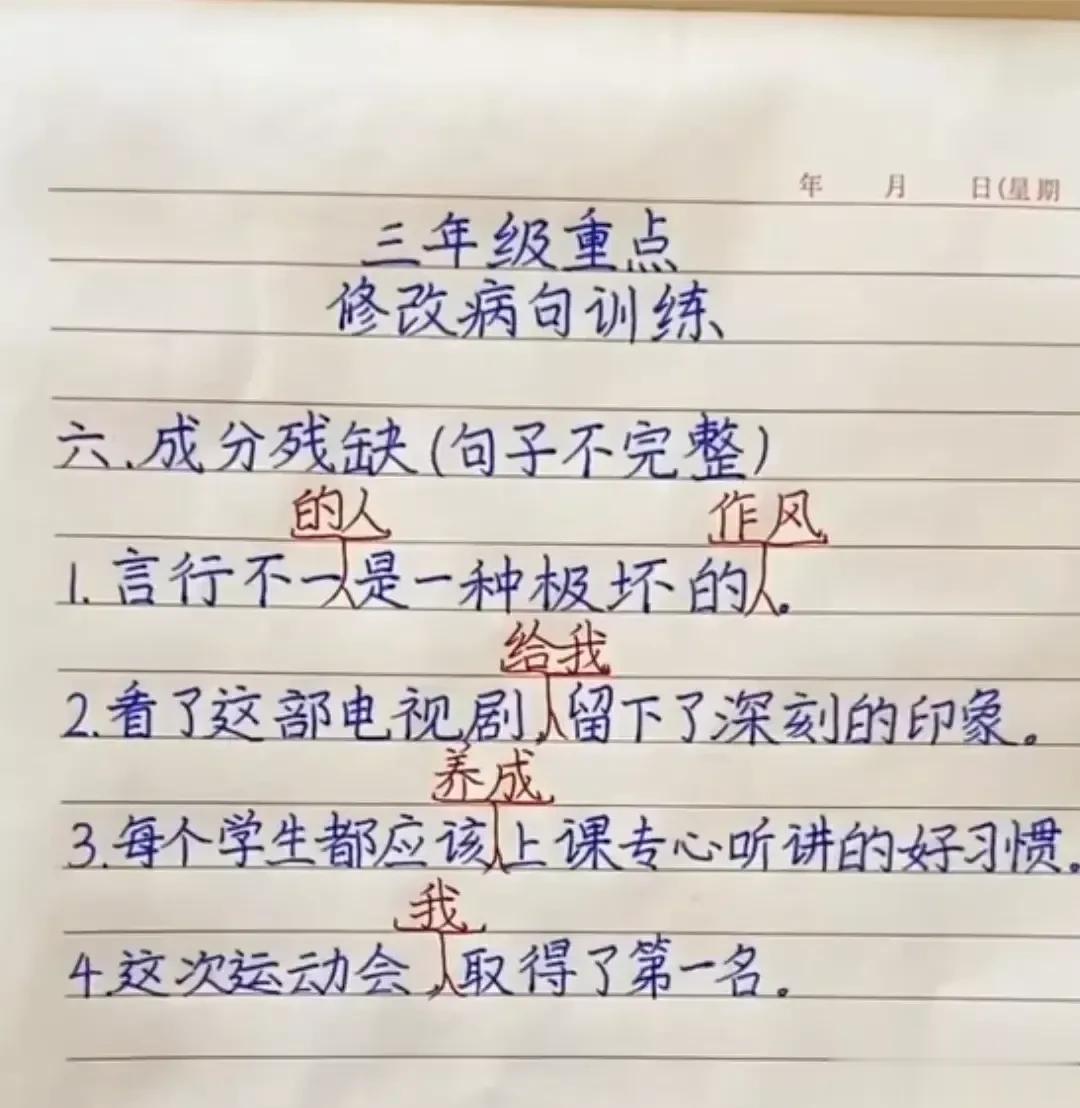 年 月 日(星期
三年级重点
修改病句训练
六、成分残缺(句子不完整)
的人 作风
1. 言行不一是一种极坏的。
给我
2.看了这部电视剧,留下了深刻的印象。
养成
3.每个学生都应该上课专心听讲的好习惯。
我
4.这次运动会,取得了第一名。